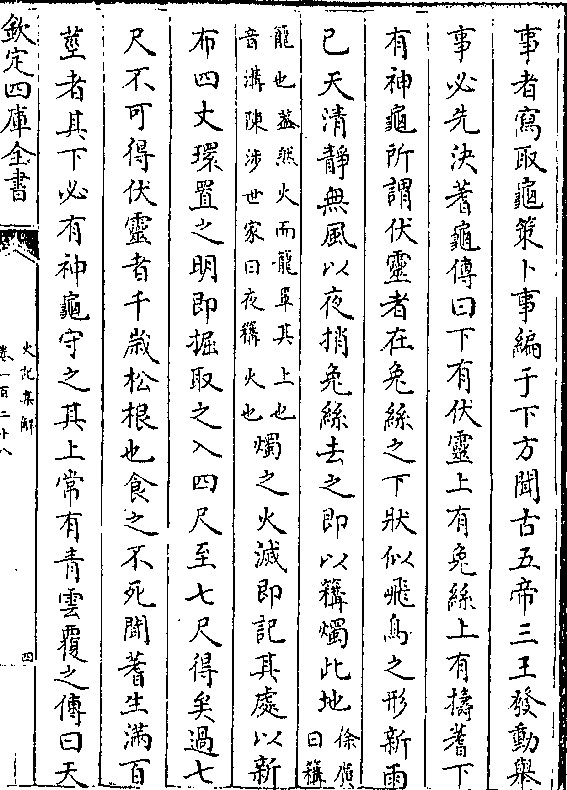 事者寫取龜策卜事編于下方聞古五帝三王發動舉
事必先決蓍龜傳曰下有伏靈上有兔絲上有擣蓍下
有神龜所謂伏靈者在兔絲之下狀似飛鳥之形新雨
已天清靜無風以夜捎兔絲去之即以篝燭此地徐廣
曰篝
籠也蓋然火而籠罩其上也
音溝陳涉世家曰夜篝火也
燭之火滅即記其處以新
布四丈環置之明即掘取之入四尺至七尺得矣過七
尺不可得伏靈者千歲松根也食之不死聞蓍生滿百
莖者其下必有神龜守之其上常有青雲覆之傳曰天
欽定四庫全書
史記集解
卷一百二十八
四